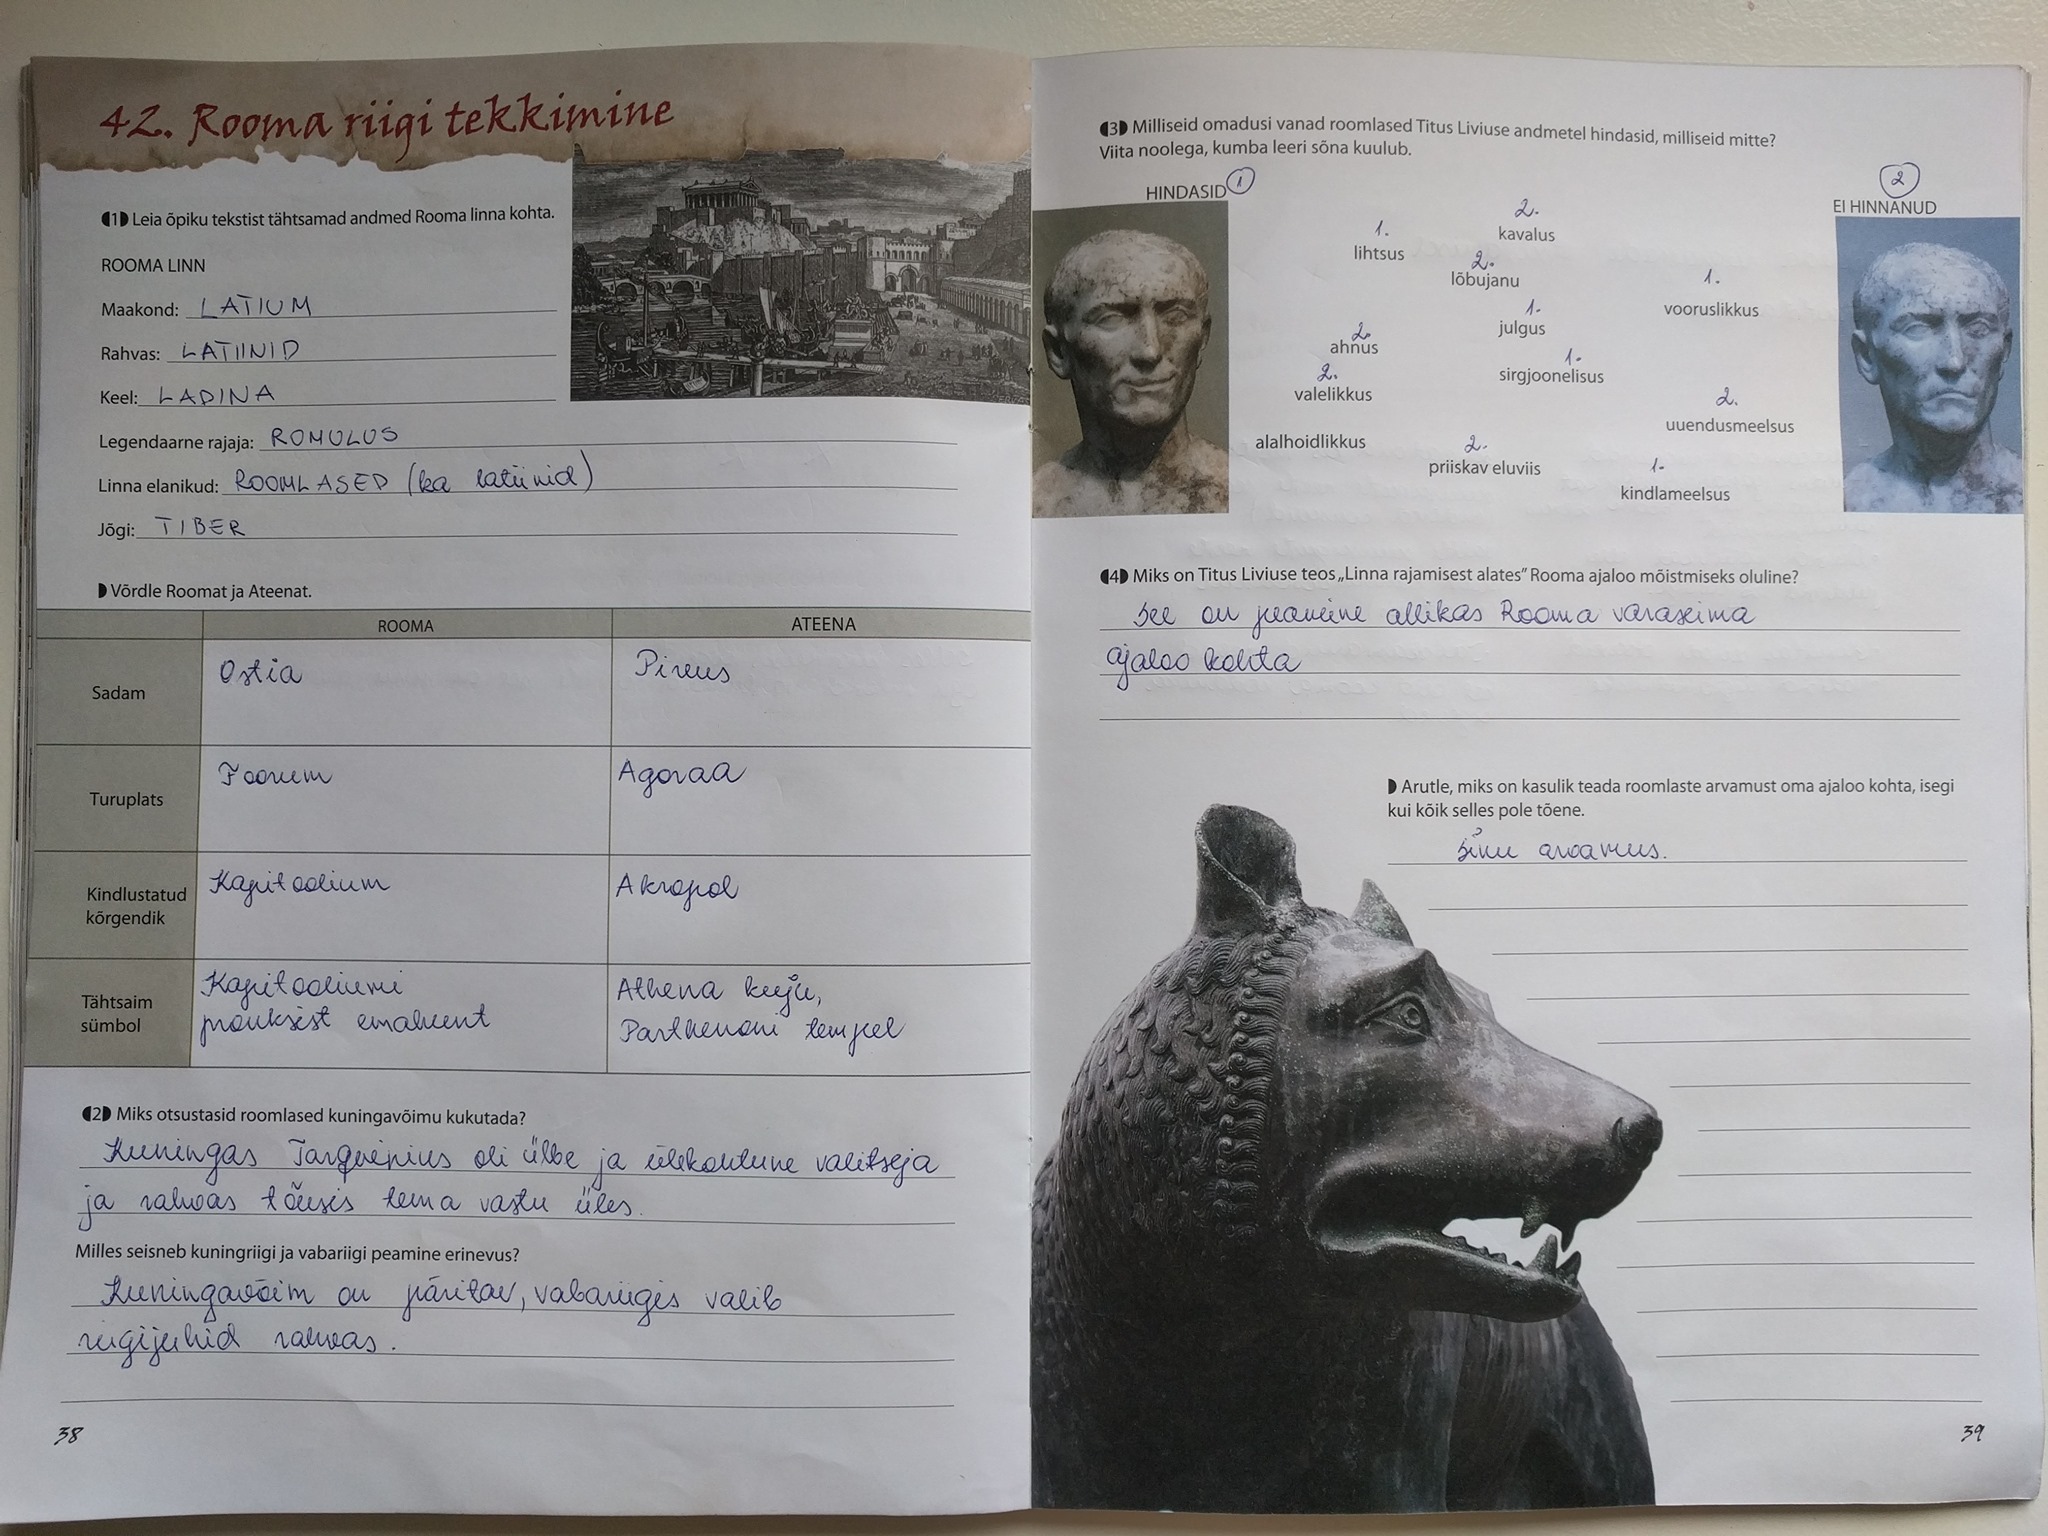 42. Rooma riigi tekkimine
1 Leia õpiku tekstist tähtsamad andmed Rooma linna kohta.
ROOMA LINN
Maakond: LATIUM
Rahvas: LATIINID
Keel: LADINA
Legendaarne rajaja: ROMULUS
Linna elanikud: ROOMLASED (ka latiinid)
Jõgi: TIBER
Võrdle Roomat ja Ateenat.
ROOMA ATEENA
Sadam Ostia Pireus
Turuplats Foorum Agoraa
Kindlustatud kõrgendik Kapitoolium Akropol
Tähtsaim sümbol Kapitooliumi pronksist emahunt Athena kuju, Parthenoni tempel
2 Miks otsustasid roomlased kuningavõimu kukutada?
Kuningas Tarquinius oli ülbe ja ülekohtune valitseja
ja rahvas tõusis tema vastu üles.
Milles seisneb kuningriigi ja vabariigi peamine erinevus?
Kuningavõim on päritav, vabariigis valib
riigijuhid rahvas.
38
3 Milliseid omadusi vanad roomlased Titus Liviuse andmetel hindasid, milliseid mitte?
Viita noolega, kumba leeri sõna kuulub.
HINDASID 1
2
EI HINNANUD
2.
kavalus
1.
lihtsus
2.
lõbujanu
1.
vooruslikkus
1.
julgus
2.
ahnus
1.
sirgjoonelisus
2.
valelikkus
2.
uuendusmeelsus
alalhoidlikkus
2.
priiskav eluviis
1.
kindlameelsus
4 Miks on Titus Liviuse teos „Linna rajamisest alates” Rooma ajaloo mõistmiseks oluline?
See on peamine allikas Rooma varaseima
ajaloo kohta
Arutle, miks on kasulik teada roomlaste arvamust oma ajaloo kohta, isegi
kui kõik selles pole tõene.
Sinu arvamus.
39